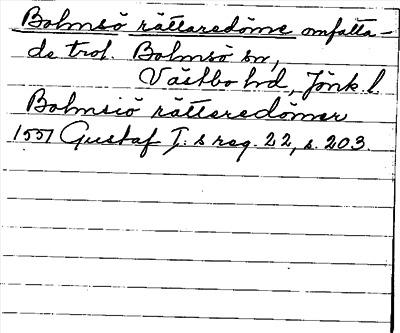 Bolmsö rättaredöme omfatta-
de trol. Bolmsö sn,
Västbo hd, Jönk. l.
Bolmsiö rättaredömer
1557 Gustaf I:s reg. 22, s. 203.